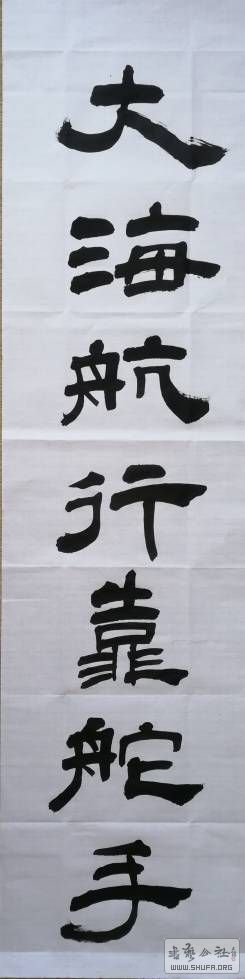 大海航行靠舵手
WWW.SHUFA.ORG